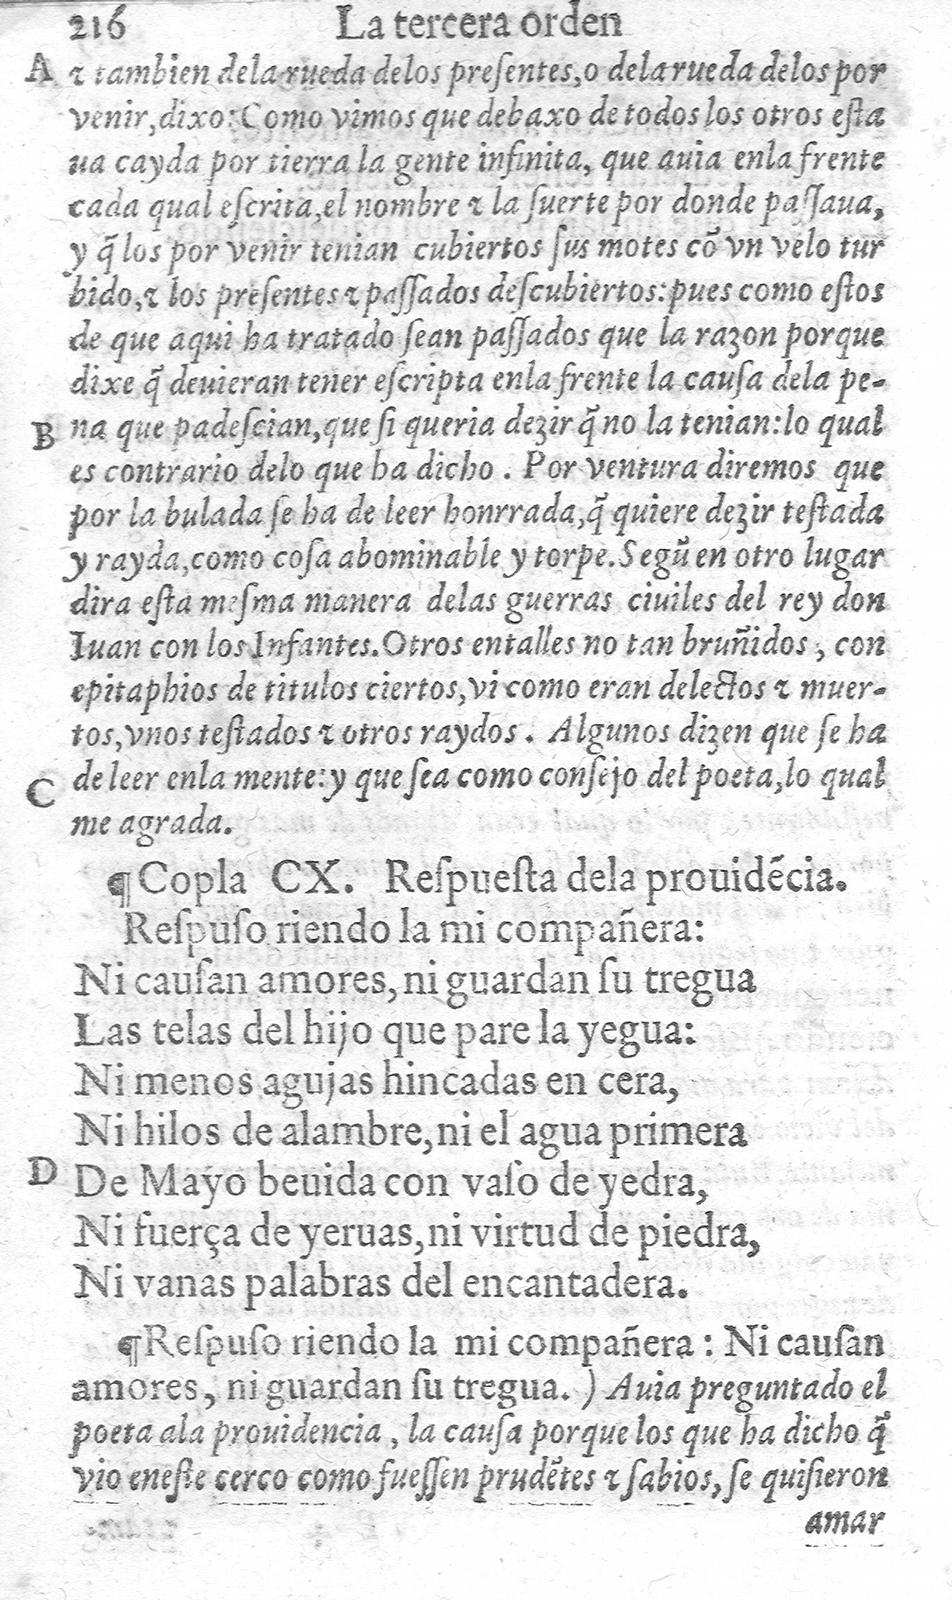 216 La tercera orden
A ⁊ tambien dela rueda delos preſentes, o dela rueda delos por
venir, dixo: Como vimos que debaxo de todos los otros eſta
ua cayda por tierra la gente infinita, que auia enla frente
cada qual eſcrita, el nombre ⁊ la ſuerte por donde paſſaua,
y q̃ los por venir tenian cubiertos ſus motes cõ vn velo tur
bido, ⁊ los preſentes ⁊ paſſados deſcubiertos: pues como eſtos
de que aqui ha tratado ſean paſſados que la razon porque
dixe q̃ deuieran tener eſcripta enla frente la cauſa dela pe-
B na que padeſcian, que ſi queria dezir q̃ no la tenian: lo qual
es contrario delo que ha dicho. Por ventura diremos que
por la bulada ſe ha de leer honrrada, q̃ quiere dezir teſtada
y rayda, como coſa abominable y torpe. Segũ en otro lugar
dira eſta meſma manera delas guerras ciuiles del rey don
Iuan con los Infantes. Otros entalles no tan bruñidos, con
epitaphios de titulos ciertos, vi como eran delectos ⁊ muer-
tos, vnos teſtados ⁊ otros raydos. Algunos dizen que ſe ha
C de leer enla mente: y que ſea como conſejo del poeta, lo qual
me agrada.
¶Copla CX. Reſpueſta dela prouidẽcia.
Reſpuſo riendo la mi compañera:
Ni cauſan amores, ni guardan ſu tregua
Las telas del hijo que pare la yegua:
Ni menos agujas hincadas en cera,
Ni hilos de alambre, ni el agua primera
D De Mayo beuida con vaſo de yedra,
Ni fuerça de yeruas, ni virtud de piedra,
Ni vanas palabras del encantadera.
¶Reſpuſo riendo la mi compañera: Ni cauſan
amores, ni guardan ſu tregua. ) Auia preguntado el
poeta ala prouidencia, la cauſa porque los que ha dicho q̃
vio eneſte cerco como fueſſen prudẽtes ⁊ ſabios, ſe quiſieron
amar